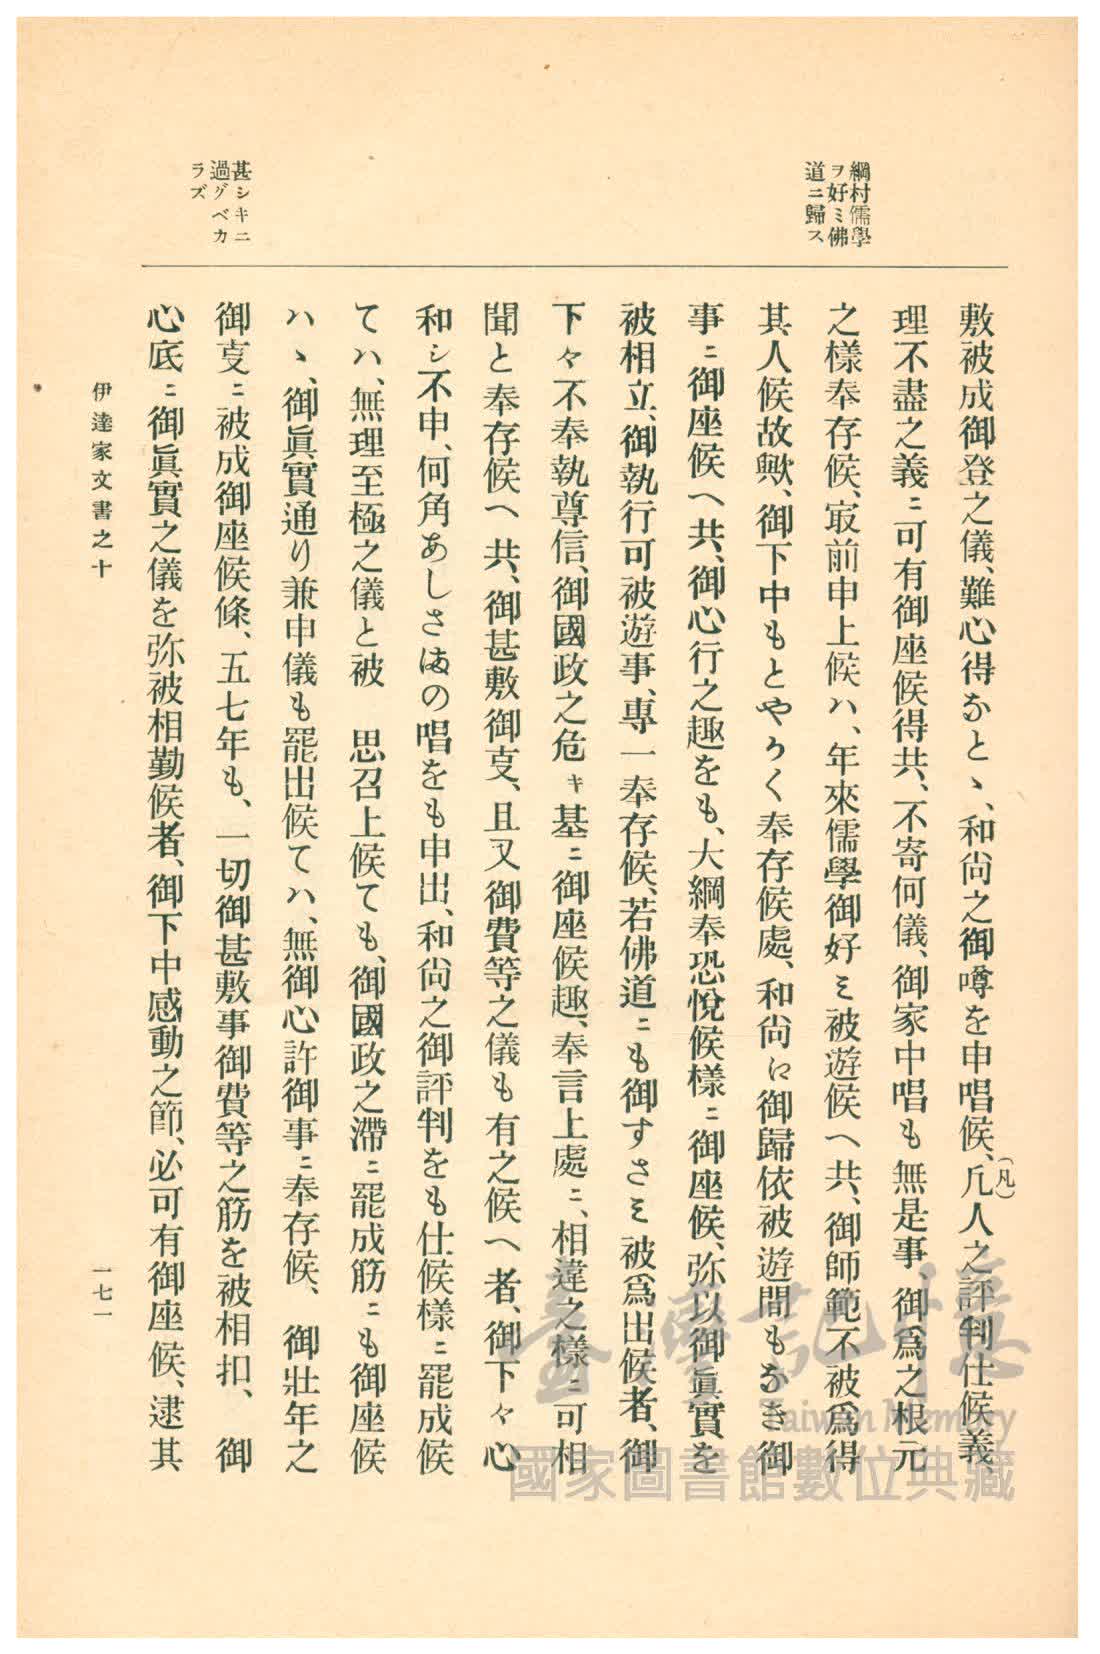 綱村儒學
ヲ好ミ佛
道ニ歸ス
甚シキニ
過グベカ
ラズ
敷被成御登之儀、難心得なとゝ、和尚之御噂を申唱候、凢人之評判仕候義、
(凡)
理不盡之義ニ可有御座候得共、不寄何儀、御家中唱も無是事、御爲之根元
之樣奉存候、㝡前申上候ハ、年來儒學御好ミ被遊候へ共、御師範不被爲得
其人候故歟、御下中もとやかく奉存候處、和尚に御歸依被遊間もなき御
事ニ御座候へ共、御心行之趣をも、大綱奉恐悅候樣ニ御座候、弥以御眞實を
被相立、御執行可被遊事、專一奉存候、若佛道ニも御すさミ被爲出候者、御
下々不奉執尊信、御國政之危キ基ニ御座候趣、奉言上處ニ、相違之樣ニ可相
聞と奉存候へ共、御甚敷御㕝、且又御費等之儀も有之候へ者、御下々心
和シ不申、何角あしさまの唱をも申出、和尚之御評判をも仕候樣ニ罷成候
てハ、無理至極之儀と被　思召上候ても、御國政之滯ニ罷成筋ニも御座候
ハヽ、御眞實通り兼申儀も罷出候てハ、無御心許御事ニ奉存候、　御壯年之
御㕝ニ被成御座候條、五七年も、一切御甚敷事御費等之筋を被相扣、　御
心底ニ御眞實之儀を弥被相勤候者、御下中感動之節、必可有御座候、逮其
伊達家文書之十
一七一
臺灣記憶
Taiwan Memory
國家圖書館數位典藏